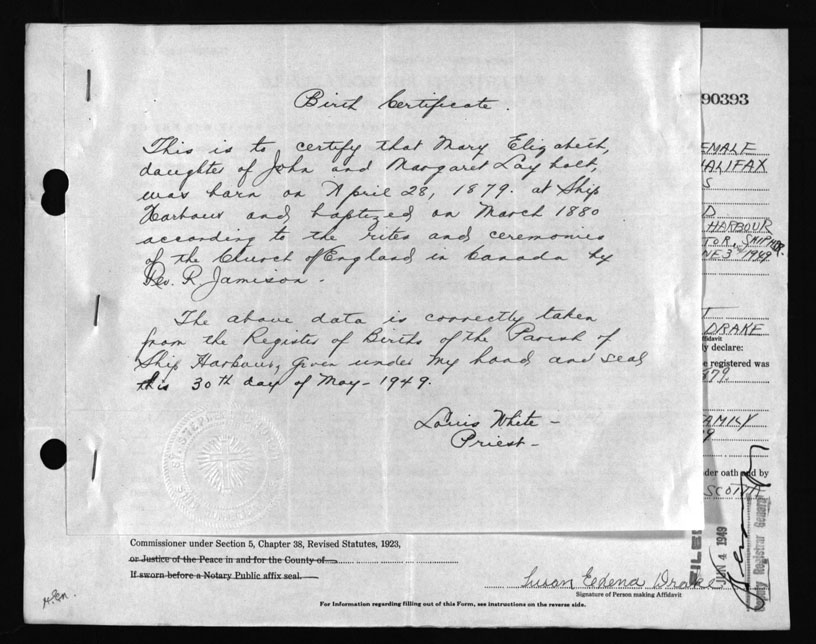 Birth Certificate.
This is to certify that Mary Elizabeth,
daughter of John and Margaret Laybolt,
was born on April 28, 1879. at Ship
Harbour and baptized on March 1880
according to the rites and ceremonies
of the Church of England in Canada by
Rev. R Jamison.
The above data is correctly taken
from the Register of Births of the Parish of
Ship Harbour, given under my hand and seal
this 30th day of May - 1949.
Louis White -
Priest -
90393
EMALE
HALIFAX
S
D
HARBOUR
TOR, SKIP HBR.
NE 3 1949
T
DRAKE
ffidavit
ly declare:
e registered was
879.
FAMILY
9
der oath and by
SCOTIA
Commissioner under Section 5, Chapter 38, Revised Statutes, 1923,
or Justice of the Peace in and for the County of
If sworn before a Notary Public affix seal.
Susan Edena Drake
Signature of Person making Affidavit
For Information regarding filling out of this Form, see instructions on the reverse side.
FILED
JUN 4 1949
Deputy Registrar General